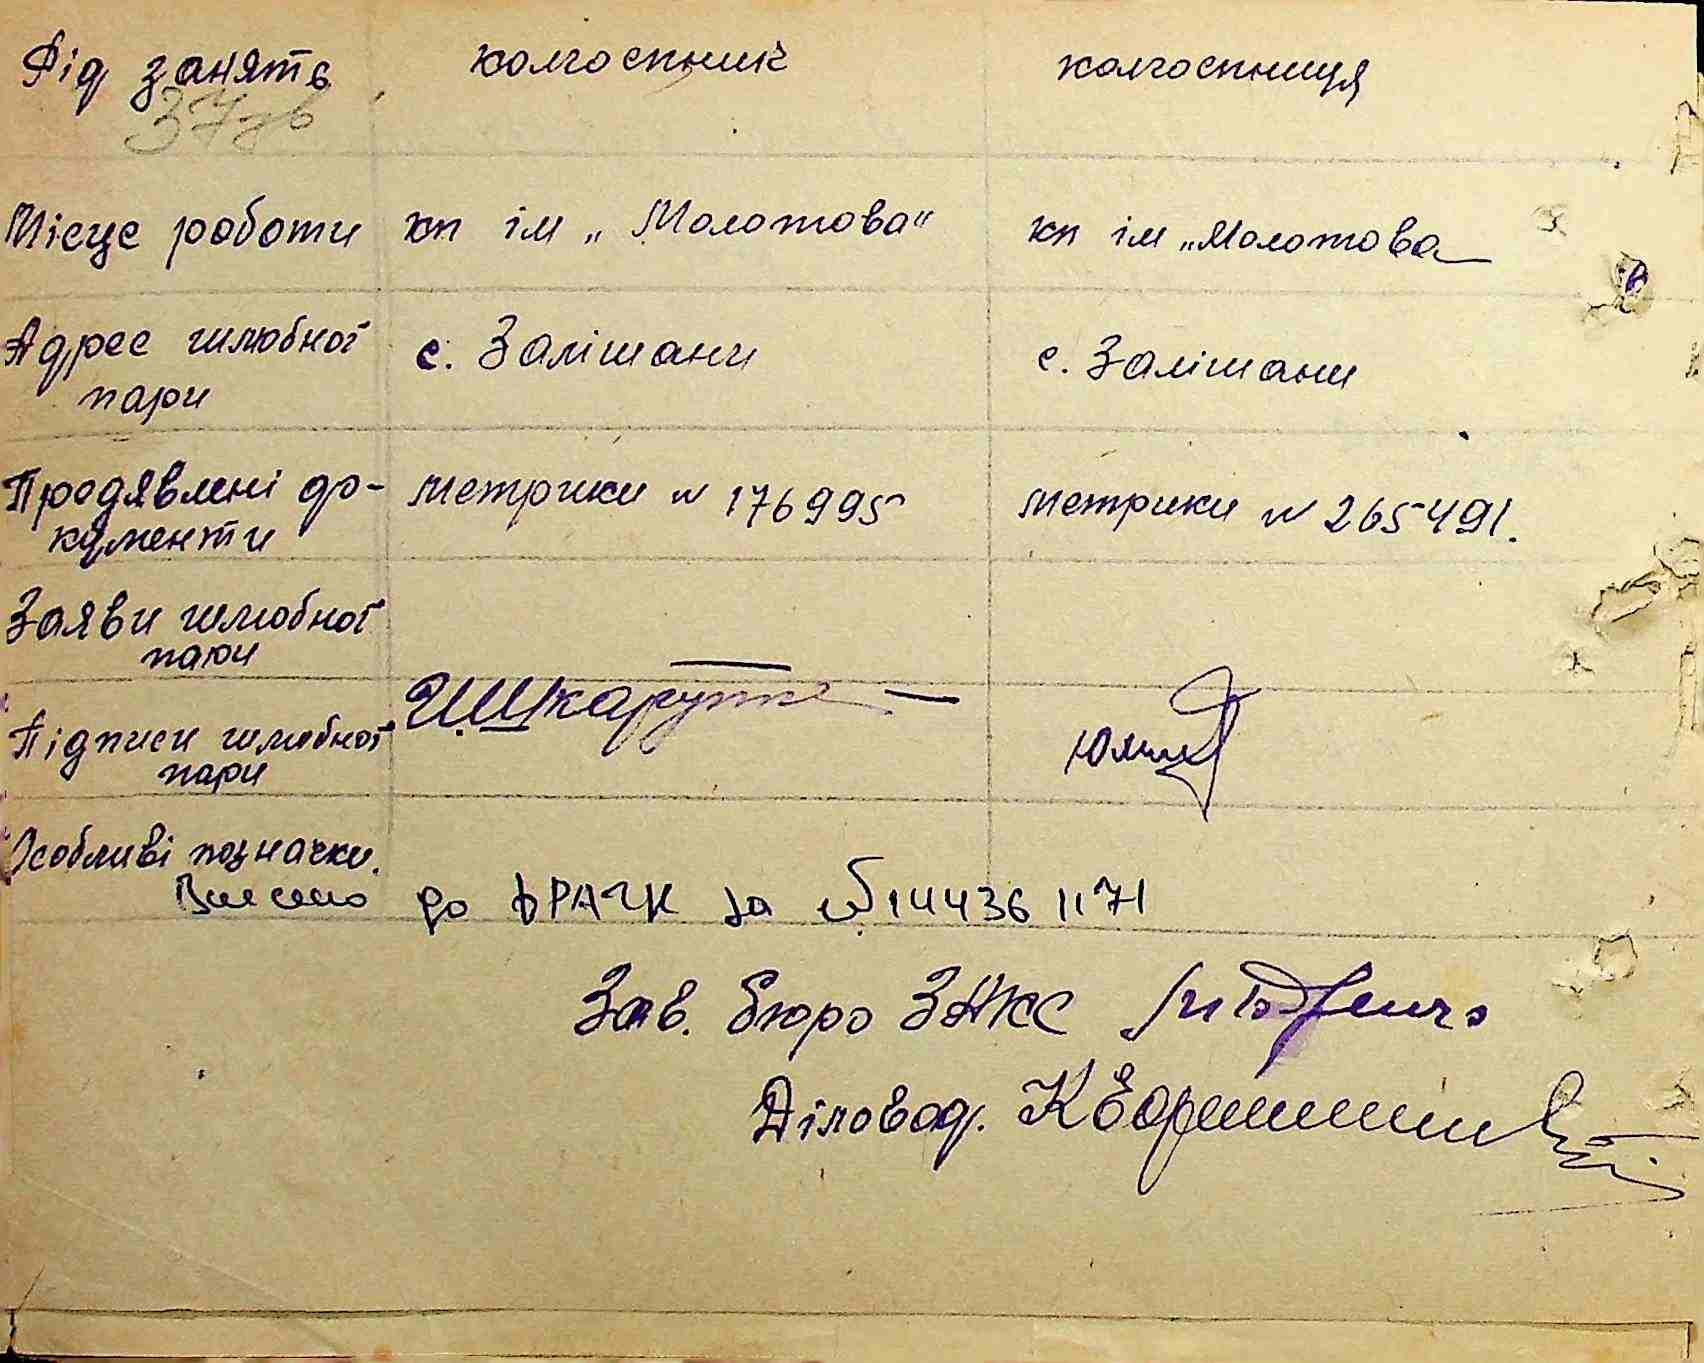 Рід занять колгоспник колгоспниця
37 зв
Місце роботи кп ім „Молотова“ кп ім „Молотова
Адрес шлюбної с. Залішани с. Залішани
пари
Предявлені до- метрики № 176995 метрики № 265491.
кументи
Заяви шлюбної —
пари
Підписи шлюбної
пари
Особливі позначки.
Внесено до ДРАЦС за № 14436 1171
Зав. бюро ЗАКС
Діловод.